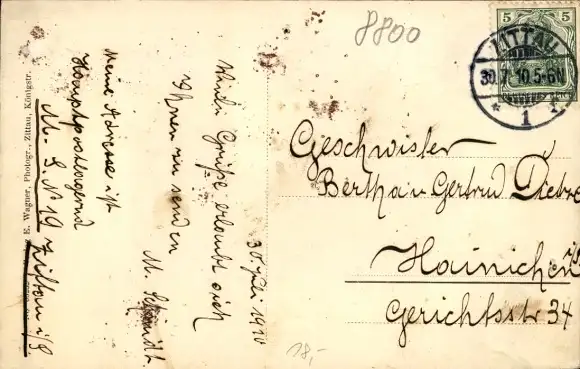 8800
5 5
ZITTAU
30.7.10.5-6N
* 1 *
Geschwister
Bertha u Gertrud
Hainichen i/S
Gerichtsstr 34
30 Juli 1910
Viele Grüße erlaubt sich
Ihnen zu senden
M. Schmidt.
Meine Adresse ist
Hauptpostlagernd
M. S. N 19 Zittau i/S
E. Wagner, Photogr., Zittau, Königstr.
18,-